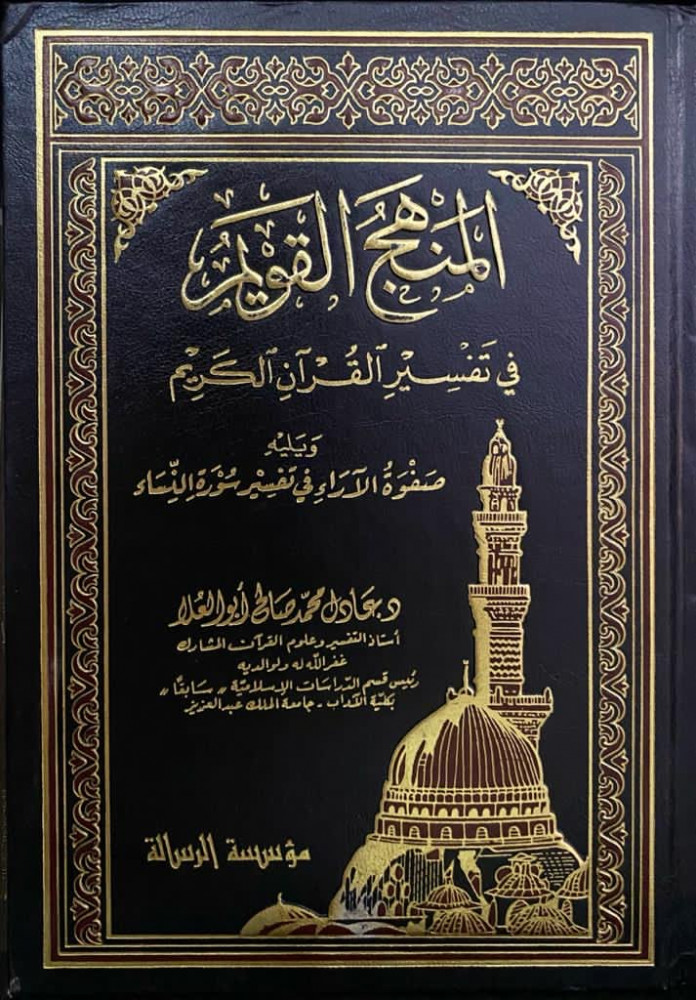 المَنهَجُ القَوِيمُ
في تَفْسِيرِ القُرْآنِ الكَرِيْمِ
وَيَليهِ
صَفْوَةُ الآرَاءِ في تَفْسِيْرِ سُوْرَةِ النِّسَاءِ
د. عادل محمّد صالح أبو العُلا
أستاذ التفسير وعلوم القرآن المشارك
غفر الله له ولوالديه
رئيس قسم الدّراسات الإسلاميّة « سابقًا »
بكليّة الآداب - جامعة الملك عبد العزيز
مؤسسة الرسالة